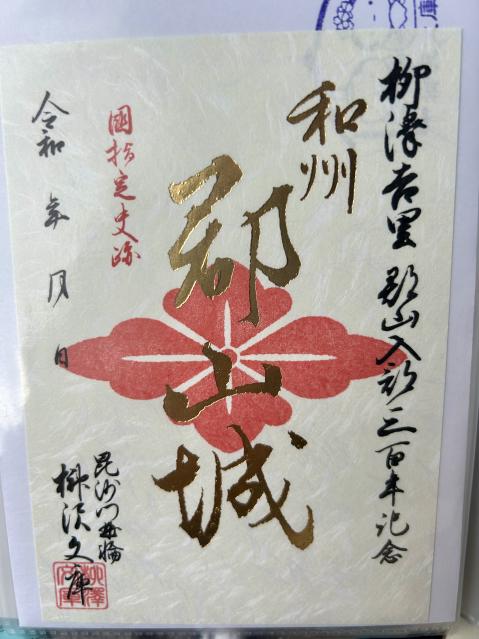 柳澤吉里 郡山入部三百年記念
和州
郡山城
國指定史跡
令和 年 月 日
毘沙門曲輪
柳沢文庫
柳澤文庫
庫